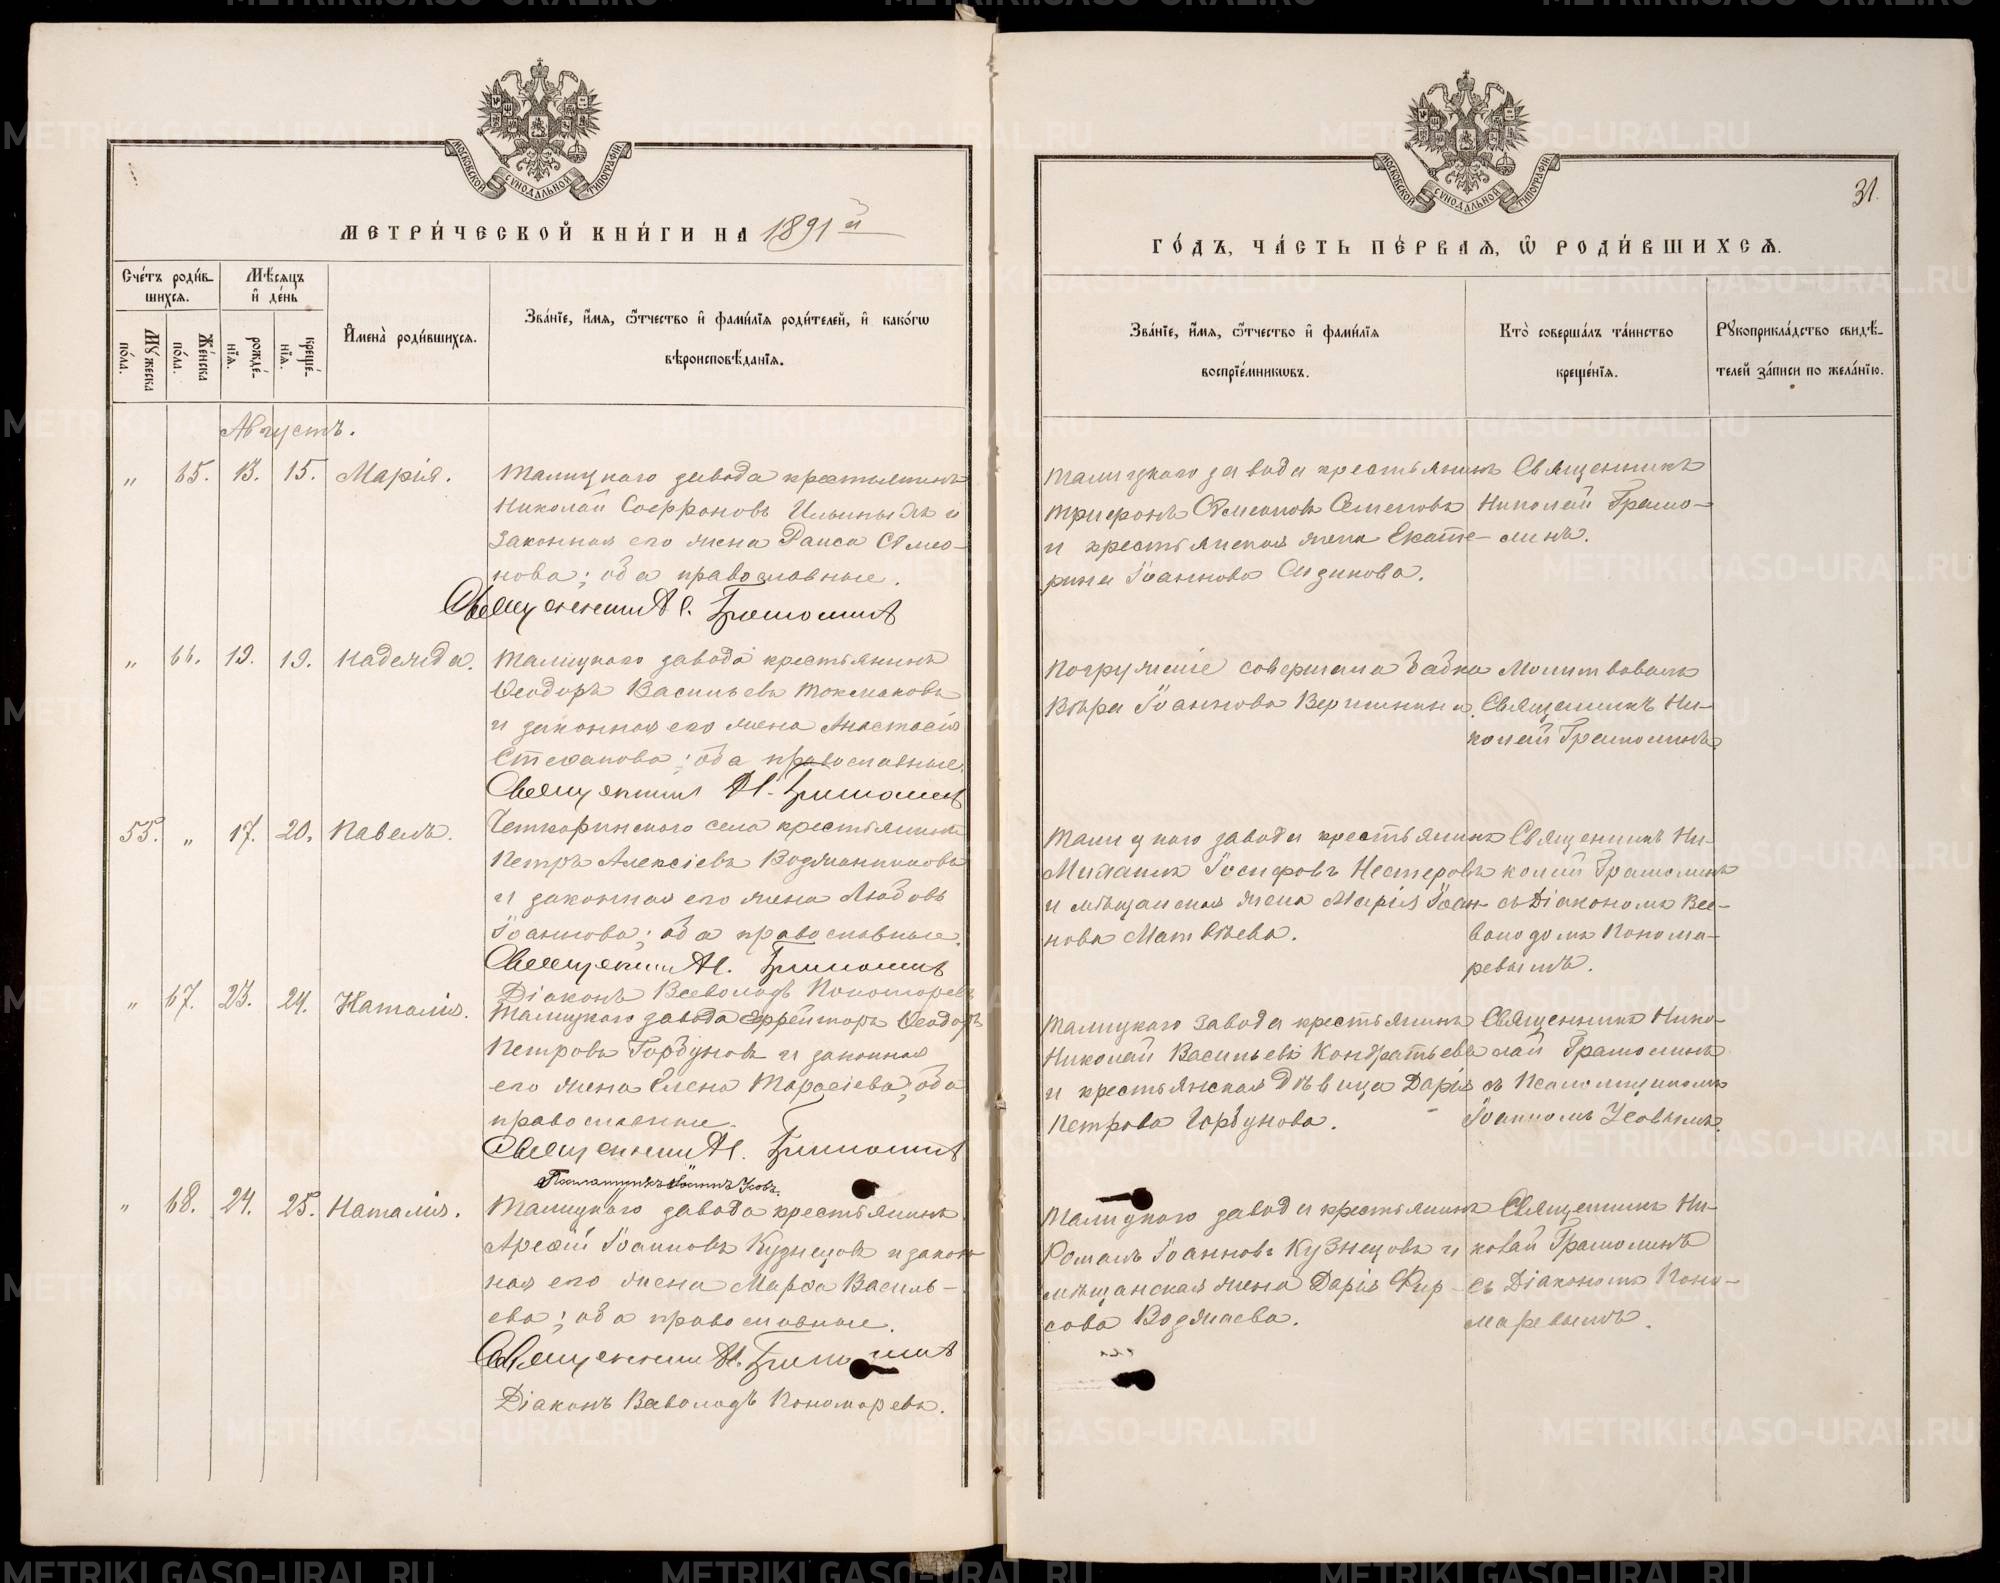 МОСКОВСКОЙ СѴНОДАЛЬНОЙ ТИПОГРАФІИ
МЕТРИ́ЧЕСКОЙ КНИ́ГИ НА 1891й
Сче́тъ роди́в-
шихсѧ.
Мѣ́сѧцъ
и҆ де́нь
И҆мена̀ роди́вшихсѧ.
Зва́нїе, и҆́мѧ, ѻ҆́тчество и҆ фами́лїѧ роди́телей, и҆ како́гѡ
вѣроисповѣ́данїѧ.
Мꙋ́жеска
по́ла.
Же́нска
по́ла.
рожде́-
нїѧ.
креще́-
нїѧ.
Августъ.
„ 65. 13. 15. Марія.
Талицкаго завода крестьянинъ
Николай Софроновъ Ильиныхъ и
законная его жена Раиса Симео-
нова; оба православные.
Священникъ Н. Грамолинъ
„ 66. 19. 19. Надежда.
Талицкаго завода крестьянинъ
Ѳеодоръ Васильевъ Токмаковъ
и законная его жена Анастасія
Стефанова; оба православные.
Священникъ Н. Грамолинъ
55. „ 17. 20. Павелъ.
села крестьянинъ
Петръ Алексіевъ Водянниковъ
и законная его жена Любовь
Іоаннова; оба православные.
Священникъ Н. Грамолинъ
Діаконъ Всеволодъ Пономаревъ
„ 67. 23. 24. Наталія.
Талицкаго завода ефрейторъ Ѳеодоръ
Петровъ Горбуновъ и законная
его жена Елена Тарасіева; оба
православные.
Священникъ Н. Грамолинъ
Псаломщикъ Іоаннъ Усовъ.
„ 68. 24. 25. Наталія.
Талицкаго завода крестьянинъ
Арефій Іоанновъ Кузнецовъ и закон
ная его жена Марфа Василь-
ева; оба православные.
Священникъ Н. Грамолинъ
Діаконъ Всеволодъ Пономаревъ.
МОСКОВСКОЙ СѴНОДАЛЬНОЙ ТИПОГРАФІИ
31.
ГО́ДЪ, ЧА́СТЬ ПЕ́РВАѦ, Ѽ РОДИ́ВШИХСѦ.
Зва́нїе, и҆́мѧ, ѻ҆́тчество и҆ фами́лїѧ
воспрїе́мникѡвъ.
Кто̀ соверша́лъ та́инство
креще́нїѧ.
Рꙋкоприкла́дство свидѣ́-
телей за́писи по жела́нїю.
Талицкаго завода крестьянинъ
Трифонъ Симеоновъ Семеновъ
и крестьянская жена Екате-
рина Іоаннова Сизикова.
Священникъ
Николай Грамо-
линъ.
Погруженіе совершала бабка
Вѣра Іоаннова Вершинина.
Молитвовалъ
Священникъ Ни-
колай Грамолинъ
Талицкаго завода крестьянинъ
Михаилъ Іосифовъ Нестеровъ
и мѣщанская жена Марія Іоан-
нова Матвѣева.
Священникъ Ни-
колай Грамолинъ
съ Діакономъ Все-
володомъ Понома-
ревымъ.
Талицкаго завода крестьянинъ
Николай Васильевъ Кондратьевъ
и крестьянская дѣвица Дарія
Петрова Горбунова.
Священникъ Нико-
лай Грамолинъ
съ Псаломщикомъ
Іоанномъ Усовымъ.
Талицкаго завода крестьянинъ
Романъ Іоанновъ Кузнецовъ и
мѣщанская жена Дарія Фир-
сова Водянаева.
Священникъ Ни-
колай Грамолинъ
съ Діакономъ Поно-
маревымъ.
METRIKI.GASO-URAL.RU